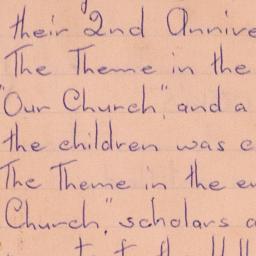 their 2nd Annive
The Theme in the
"Our Church," and a
the children was c
The Theme in the e
Church," scholars a